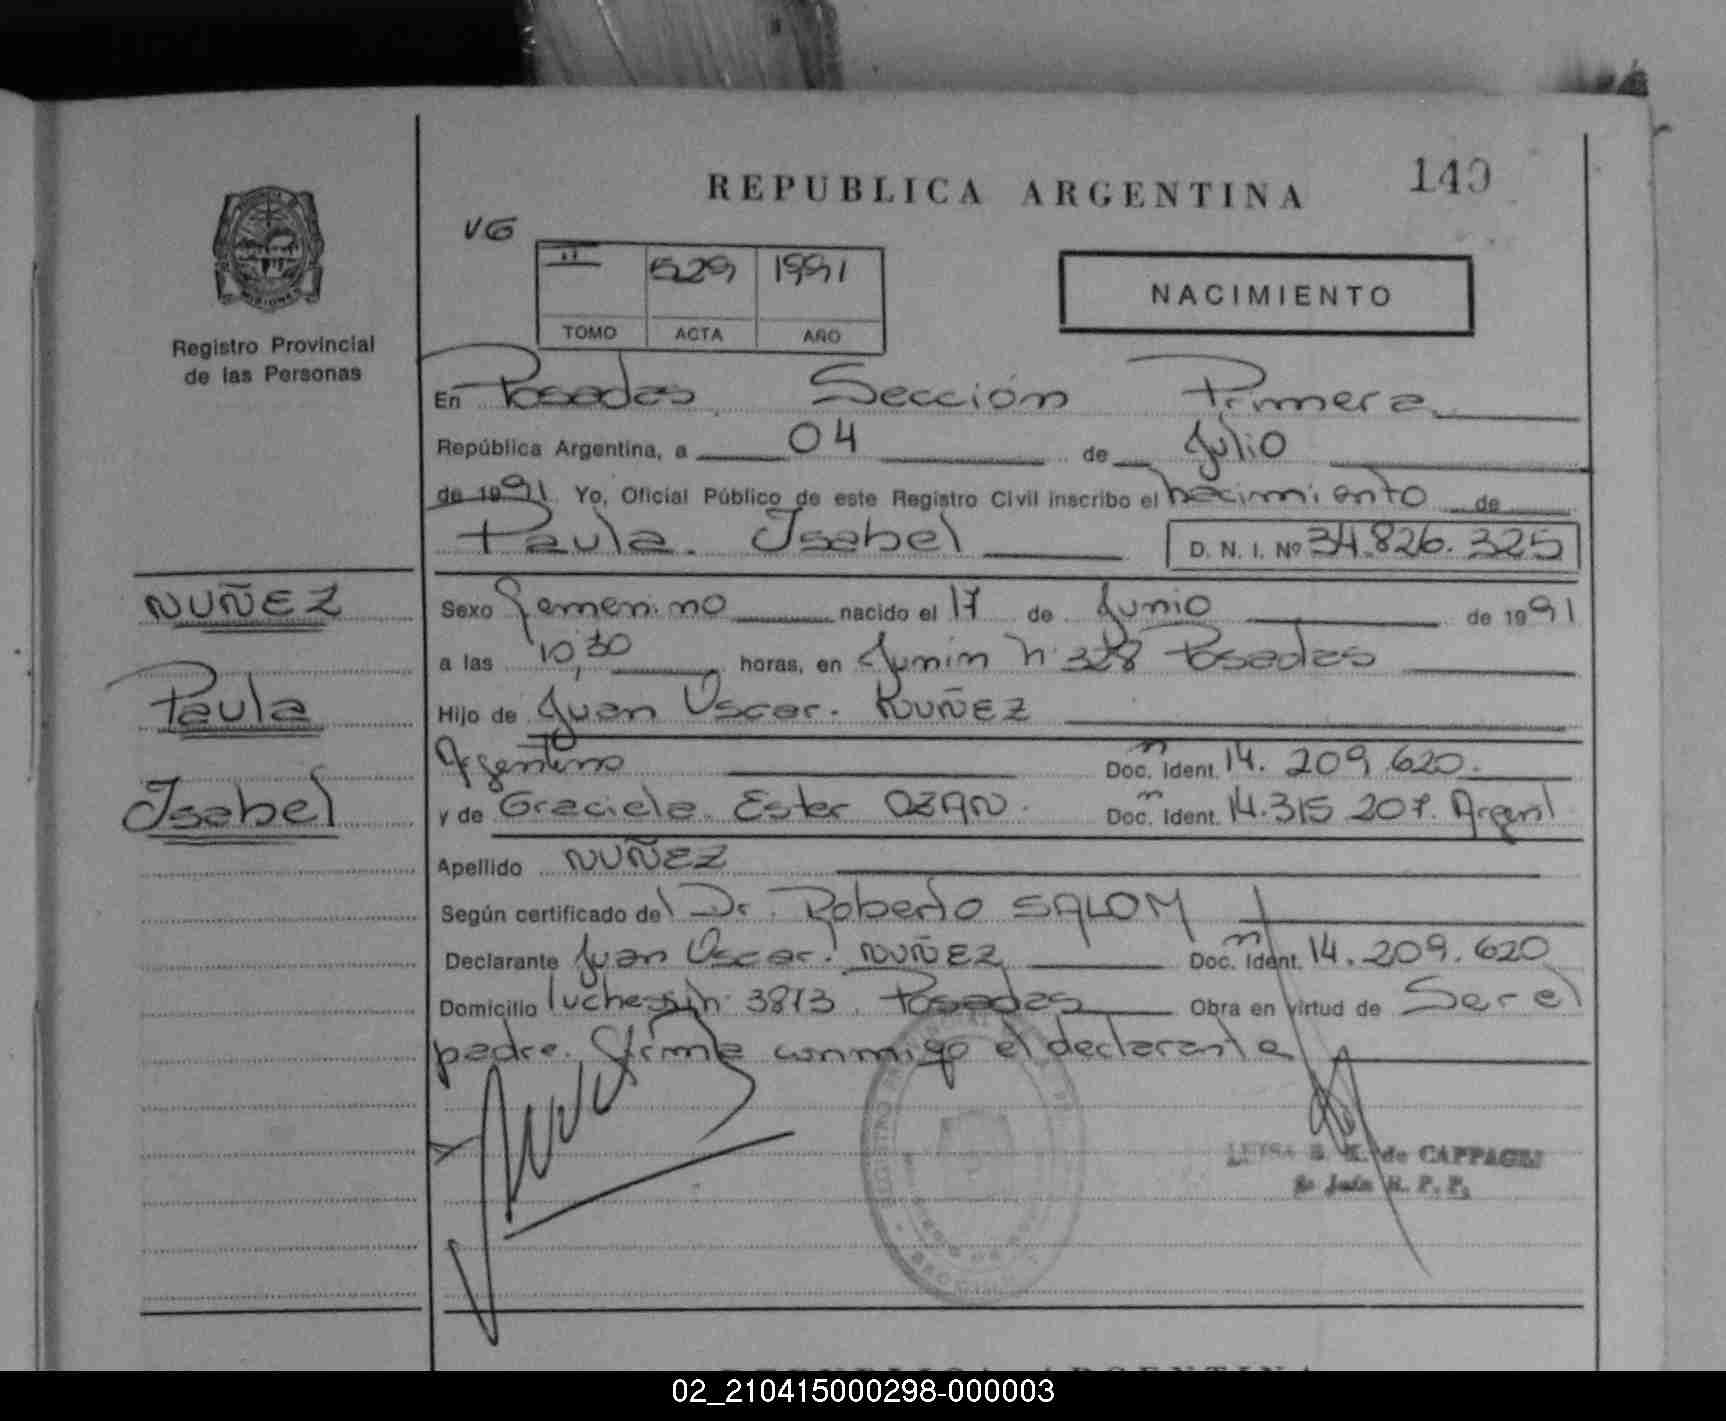 REPUBLICA ARGENTINA
140
VG
II 529 1991
TOMO ACTA AÑO
NACIMIENTO
Registro Provincial
de las Personas
En Posadas Sección Primera
República Argentina, a 04 de Julio
de 1991 Yo, Oficial Público de este Registro Civil inscribo el nacimiento de
Paula Isabel D. N. I. Nº 34.826.325
NUÑEZ
Paula
Isabel
Sexo femenino nacido el 17 de Junio de 1991
a las 10,30 horas, en Junin n: 328 Posadas
Hijo de Juan Oscar. NUÑEZ
Argentino Doc. Ident. 14.209.620.
y de Graciela Ester OZAN. Doc. Ident. 14.315.207. Argent
Apellido NUÑEZ
Según certificado del Dr. Roberto SALOM
Declarante Juan Oscar. NUÑEZ Doc. Ident. 14.209.620
Domicilio 3813. Posadas Obra en virtud de Ser el
padre. firma conmigo el declarante
de CAPPAGLI
R. P. P.
REPUBLICA ARGENTINA
02_210415000298-000003